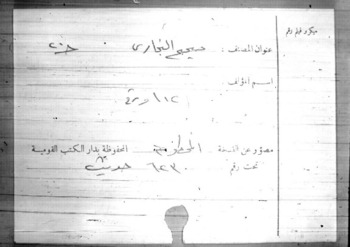 ميكروفيلم رقم
عنوان المصنف : صحيح البخارى
اسم المؤلف :
١١٢ ورقة
مصور عن النسخة المخطوطة المحفوظة بدار الكتب القومية
تحت رقم ٦٢٣ حديث